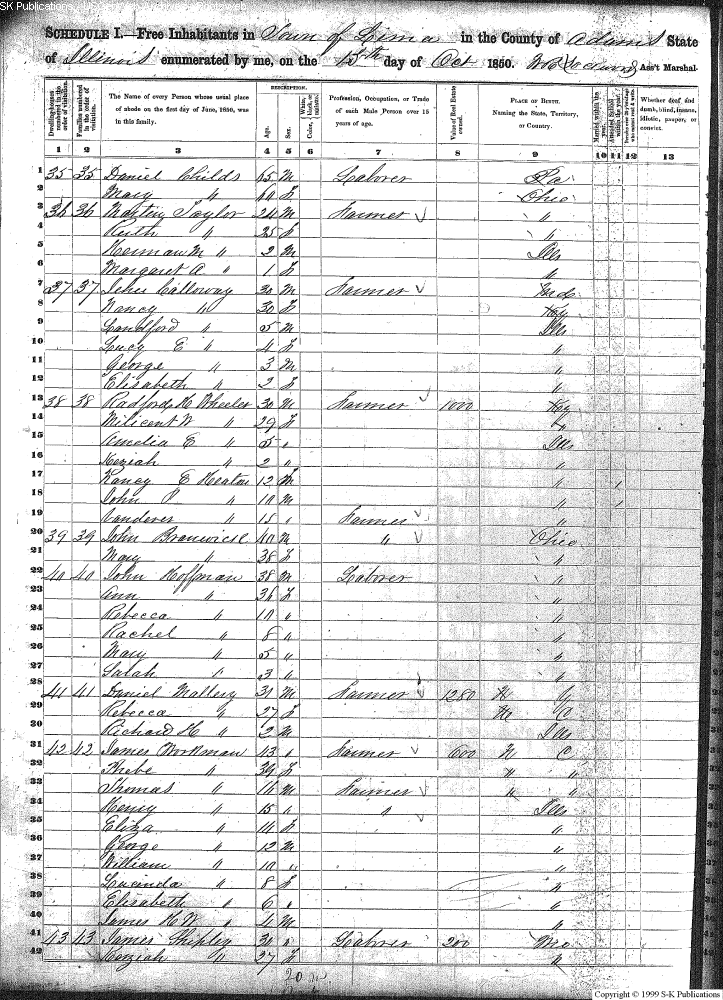 SK Publications
SCHEDULE I.—Free Inhabitants in Town of Lima in the County of Adams State
of Illinois enumerated by me, on the 15th day of Oct 1850. Ass't Marshal.
DESCRIPTION.
Dwelling-houses numbered in the order of visitation.
Families numbered in the order of visitation.
The Name of every Person whose usual place of abode on the first day of June, 1850, was in this family.
Age.
Sex.
White, black, or mulatto. Color
Profession, Occupation, or Trade of each Male Person over 15 years of age.
Value of Real Estate owned.
PLACE OF BIRTH. Naming the State, Territory, or Country.
Married within the year.
Attended School within the year.
Whether deaf and dumb, blind, insane, idiotic, pauper, or convict.
1 2 3 4 5 6 7 8 9 10 11 12 13
1 35 35 Daniel Childs 65 M Laborer Pa
2 Mary " 60 F Ohio
3 36 36 Taylor 24 M Farmer "
4 Ruth " 25 F "
5 Herman M " 2 M Ills
6 Margaret A " 1 F "
7 37 37 John Calloway 30 M Farmer
8 Nancy " 30 F Key
9 Landford " 5 M Ills
10 Lucy E " 4 F "
11 George " 3 M "
12 Elisabeth " 2 F "
13 38 38 Radford H Wheeler 30 M Farmer 1000 Key
14 Milicent W " 29 F "
15 Amelia E " 5 " Ills
16 Keziah " 2 " "
17 Nancy E Heaton 12 F "
18 John P " 10 M "
19 Vanderer " 15 " Farmer "
20 39 39 John 40 M " Ohio
21 Mary " 38 F "
22 40 40 John Hoffman 38 M Laborer "
23 Ann " 36 F "
24 Rebecca " 10 " "
25 Rachel " 8 " "
26 Mary " 5 " "
27 Sarah " 3 " "
28 41 41 Daniel Mallery 31 M Farmer 1280 N C
29 Rebecca " 27 F N C
30 Richard H " 2 M Ills
31 42 42 James Workman 43 " Farmer 600 N C
32 Phebe " 39 F " "
33 Thomas " 16 M Farmer " "
34 Henry " 15 " " Ills
35 Eliza " 14 F "
36 George " 12 M "
37 William " 10 " "
38 Lucinda " 8 F "
39 Elisabeth " 6 " "
40 James H W " 4 M "
41 43 43 James Shipley 30 " Laborer 200 Mo
42 Keziah " 27 F "
20
Copyright © 1999 S-K Publications